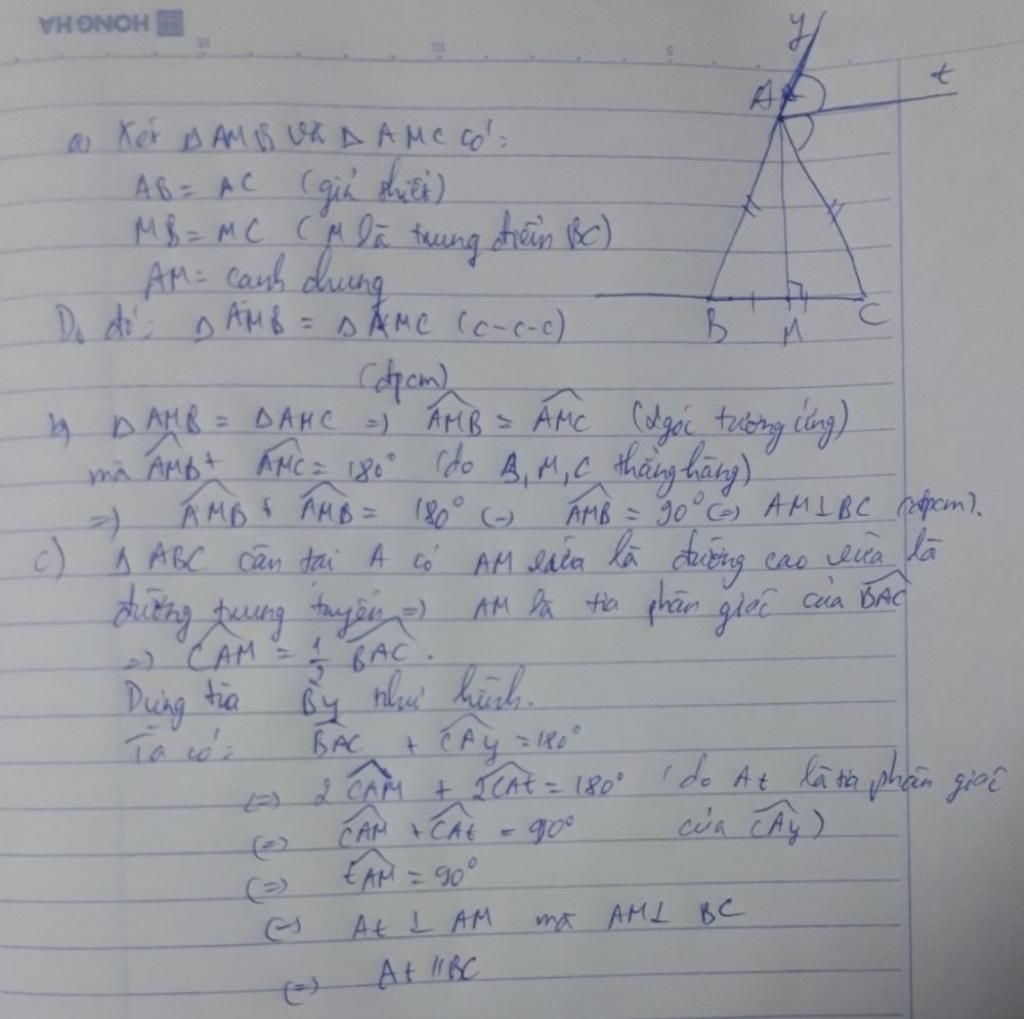 HONG HA
15 10 5
y
A
t
B M C
a) Xét Δ AMB và Δ AMC có:
AB = AC (giả thiết)
MB = MC (M là trung điểm BC)
AM = cạnh chung
Do đó: Δ AMB = Δ AMC (c-c-c)
(đpcm)
b) Δ AMB = Δ AMC => \widehat{AMB} = \widehat{AMC} (2 góc tương ứng)
mà \widehat{AMB} + \widehat{AMC} = 180° (do B, M, C thẳng hàng)
=> \widehat{AMB} + \widehat{AMB} = 180° (=) \widehat{AMB} = 90° (=) AM ⊥ BC (đpcm).
c) Δ ABC cân tại A có AM vừa là đường cao vừa là
đường trung tuyến => AM là tia phân giác của \widehat{BAC}
=> \widehat{CAM} = \frac{1}{2} \widehat{BAC}.
Dựng tia By như hình.
Ta có: \widehat{BAC} + \widehat{CAy} = 180°
(=) 2\widehat{CAM} + 2\widehat{CAt} = 180° (do At là tia phân giác
(=) \widehat{CAM} + \widehat{CAt} = 90° của \widehat{CAy})
(=) \widehat{tAM} = 90°
(=) At ⊥ AM mà AM ⊥ BC
(=) At // BC